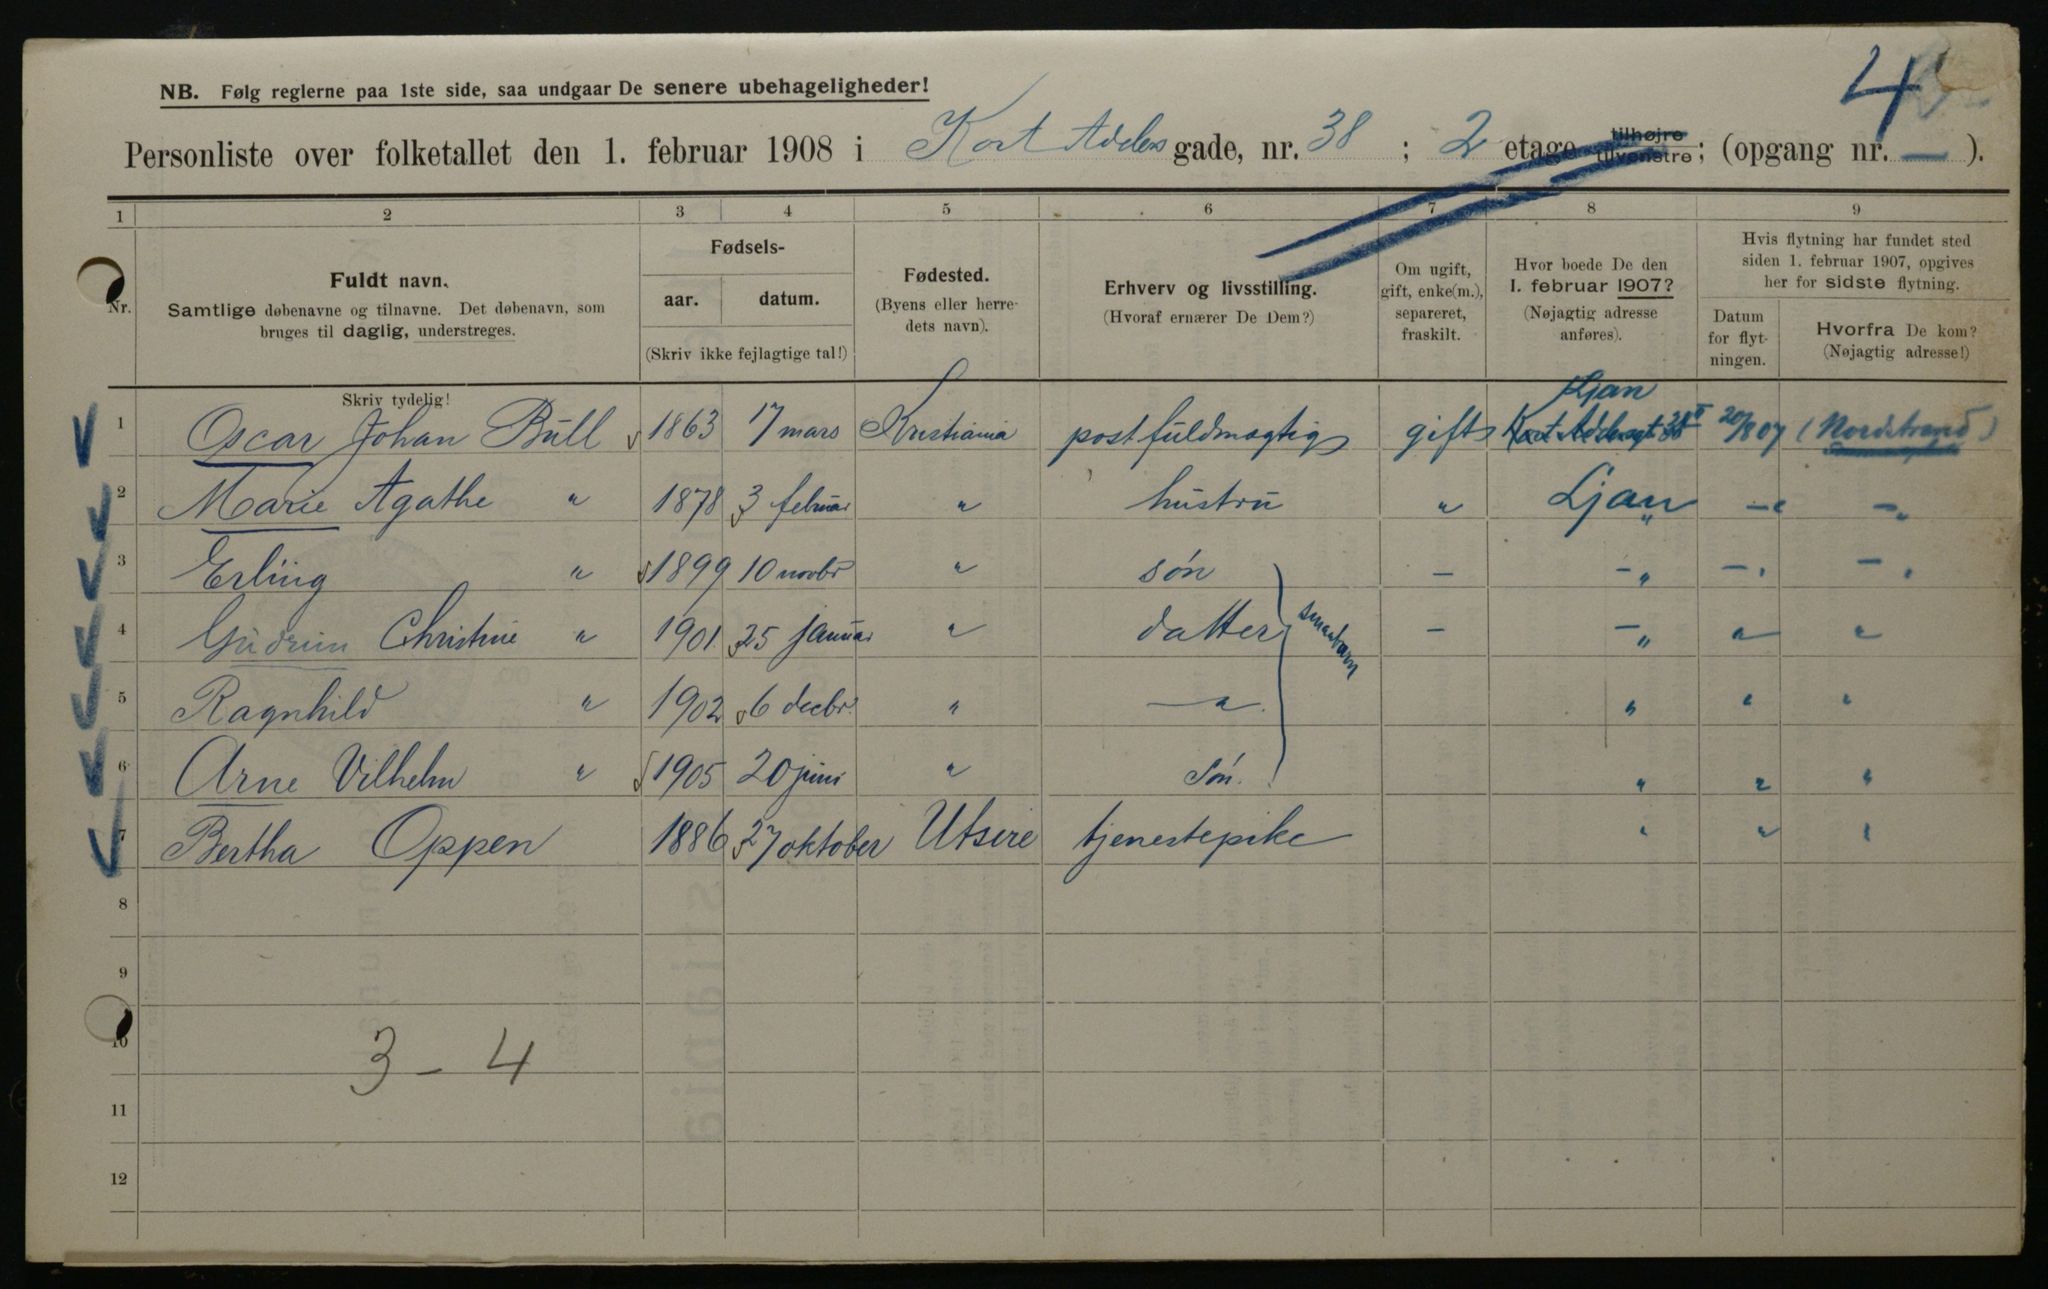 4
NB. Følg reglerne paa 1ste side, saa undgaar De senere ubehageligheder!
Personliste over folketallet den 1. februar 1908 i Kort Adelers gade, nr. 38 ; 2 etage tilhøjre tilvenstre ; (opgang nr. — ).
1 2 3 4 5 6 7 8 9
Nr.
Fuldt navn.
Samtlige døbenavne og tilnavne. Det døbenavn, som
bruges til daglig, understreges.
Skriv tydelig!
Fødsels-
aar. datum.
(Skriv ikke fejlagtige tal!)
Fødested.
(Byens eller herre-
dets navn).
Erhverv og livsstilling.
(Hvoraf ernærer De Dem?)
Om ugift,
gift, enke(m.),
separeret,
fraskilt.
Hvor boede De den
1. februar 1907?
(Nøjagtig adresse
anføres).
Hvis flytning har fundet sted
siden 1. februar 1907, opgives
her for sidste flytning.
Datum
for flyt-
ningen.
Hvorfra De kom?
(Nøjagtig adresse!)
Ljan
1 Oscar Johan Bull 1863 17 mars Kristiania postfuldmægtig gift Kort Adelersgt 38 II 20/8 07 (Nordstrand)
2 Marie Agathe " 1878 3 februar " hustru " Ljan " —" —"
3 Erling " 1899 10 novbr " søn — —" —" —"
4 Gudrun Christine " 1901 25 januar " datter — —" " "
smaabarn
5 Ragnhild " 1902 6 decbr. " —"— " " "
6 Arne Vilhelm " 1905 20 juni " søn. " " "
7 Bertha Oppen 1886 27 oktober Utsire tjenestepike " " "
8
9
10
3 – 4
11
12